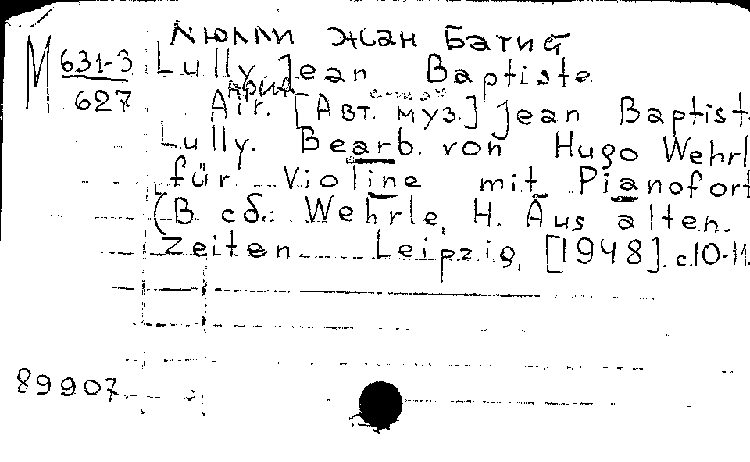 Люлли Жан Батист
М 631-3
627
Lully, Jean Baptiste
Ария
Air. [Авт. муз.] Jean Baptist
Lully. Bearb. von Hugo Wehrl
für Violine mit Pianofort
(В сб.: Wehrle, H. Aus alten
Zeiten Leipzig, [1948]. с.10-11.
89907